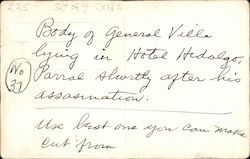 225- Set of 4
Body of General Villa
lying in Hotel Hidalgo,
No 37
Parral shortly after his
assasination.
Use best one you can make
cut from